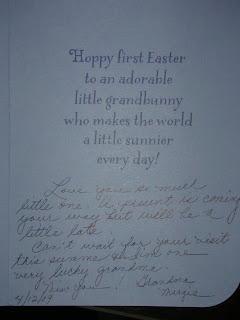 Hoppy first Easter
to an adorable
little grandbunny
who makes the world
a little sunnier
every day!
Love you so much
little one. A present is coming
your way but will be a
little late.
Can't wait for your visit
this summer I'm one
very lucky grandma.
Love you! Grandma
4/12/19 Margie